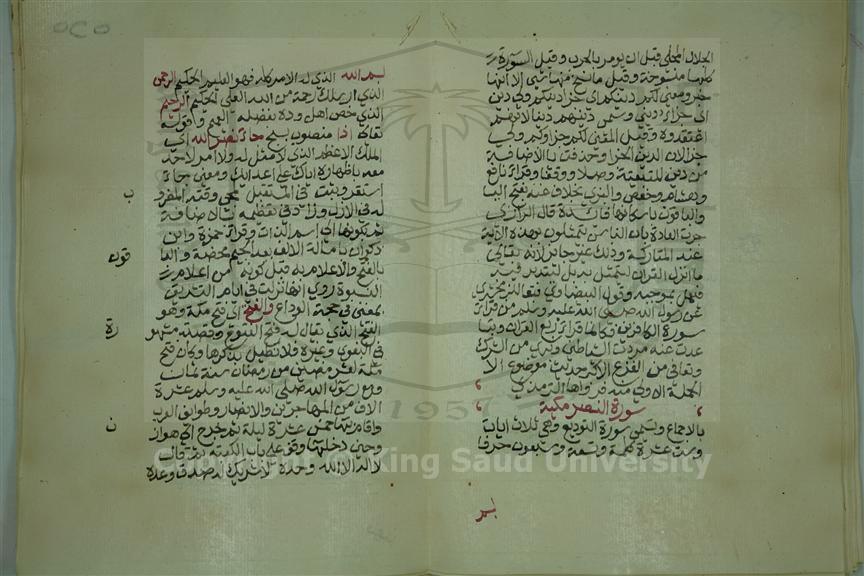 الجلال المحلي قبل ان يومر بالحرب وقيل السورة
كلها منسوخة وقيل ما نسخ منها شي لا انها
خبر ومعنى لكم دينكم اي جزا دينكم ولي دين
اي جزا ديني وسمى دينهم دينا لانهم
اعتقدوه وقيل المعنى لكم جزاوكم ولي
جزاي لان الدين الجزا وحذفت يا الاضافة
من دين للتبعية وصلا ووقفا وقرا نافع
وهشام وحفص والبزي بخلاف عنه بفتح اليا
والباقون باسكانها فايدة قال الرازي
جرت العادة بان الناس يتمثلون بهذه الاية
عند المتاركة وذلك غير جايز لانه تعالى
ما انزل القران ليتمثل به بل ليتدبر فيه
فيعمل بموجبه وقول البيضاوي تبعا للزمخشري
عن رسول الله صلى الله عليه وسلم من قرا
سورة الكافرين فكانما قرا ربع القران وتبا
عدت عنه مردة الشياطين وبري من الشرك
وتعافى من الفزع الاكبر حديث موضوع الا
الجملة الاولى منه فرواها الترمذي
سورة النصر مكية
بالاجماع وتسمى سورة التوديع وهي ثلاث ايات
وست عشرة كلمة وتسعة وسبعون حرفا
بسم
بسم الله الذي له الامر كله فهو العليم الحكيم الرحمن
الذي ارسلك رحمة من الله العلي الحكيم الرحيم
الذي خص اهل وده بفضله وقوله
تعالى اذا منصوب بسبح جاء نصر الله اي
الملك الاعظم الذي لا مثل له ولا امر لاحد
معه باظهاره اياك على اعدائك ومعنى جاء
استقر وثبت في المستقبل وقته المضروب
له في الازل وزاد في تعظيمه بالاضافة
الى اسم الذات وقرا حمزة وابن
ذكوان بامالة الالف بعد الجيم محضة والباقون
بالفتح والاعلام به قبل كونه من اعلام
النبوة روي انها نزلت في ايام التشريق
بمنى في حجة الوداع والفتح اي فتح مكة وهو
الفتح الذي يقال له فتح الفتوح وقصته مشهورة
في البغوي وغيره فلا نطيل بذكرها وكان فتح
مكة لعشر مضين من رمضان سنة ثمان
ومع رسول الله صلى الله عليه وسلم عشرة
الاف من المهاجرين والانصار وطوايف العرب
واقام بها خمس عشرة ليلة ثم خرج الى هوازن
وحين دخلها وقف على باب الكعبة ثم قال
لا اله الا الله وحده لا شريك له صدق وعده